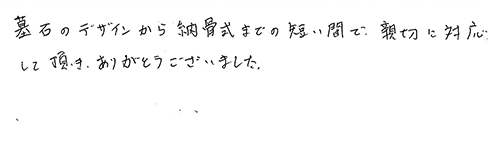 墓石のデザインから納骨式までの短い間で、親切に対応
して頂き、ありがとうございました。